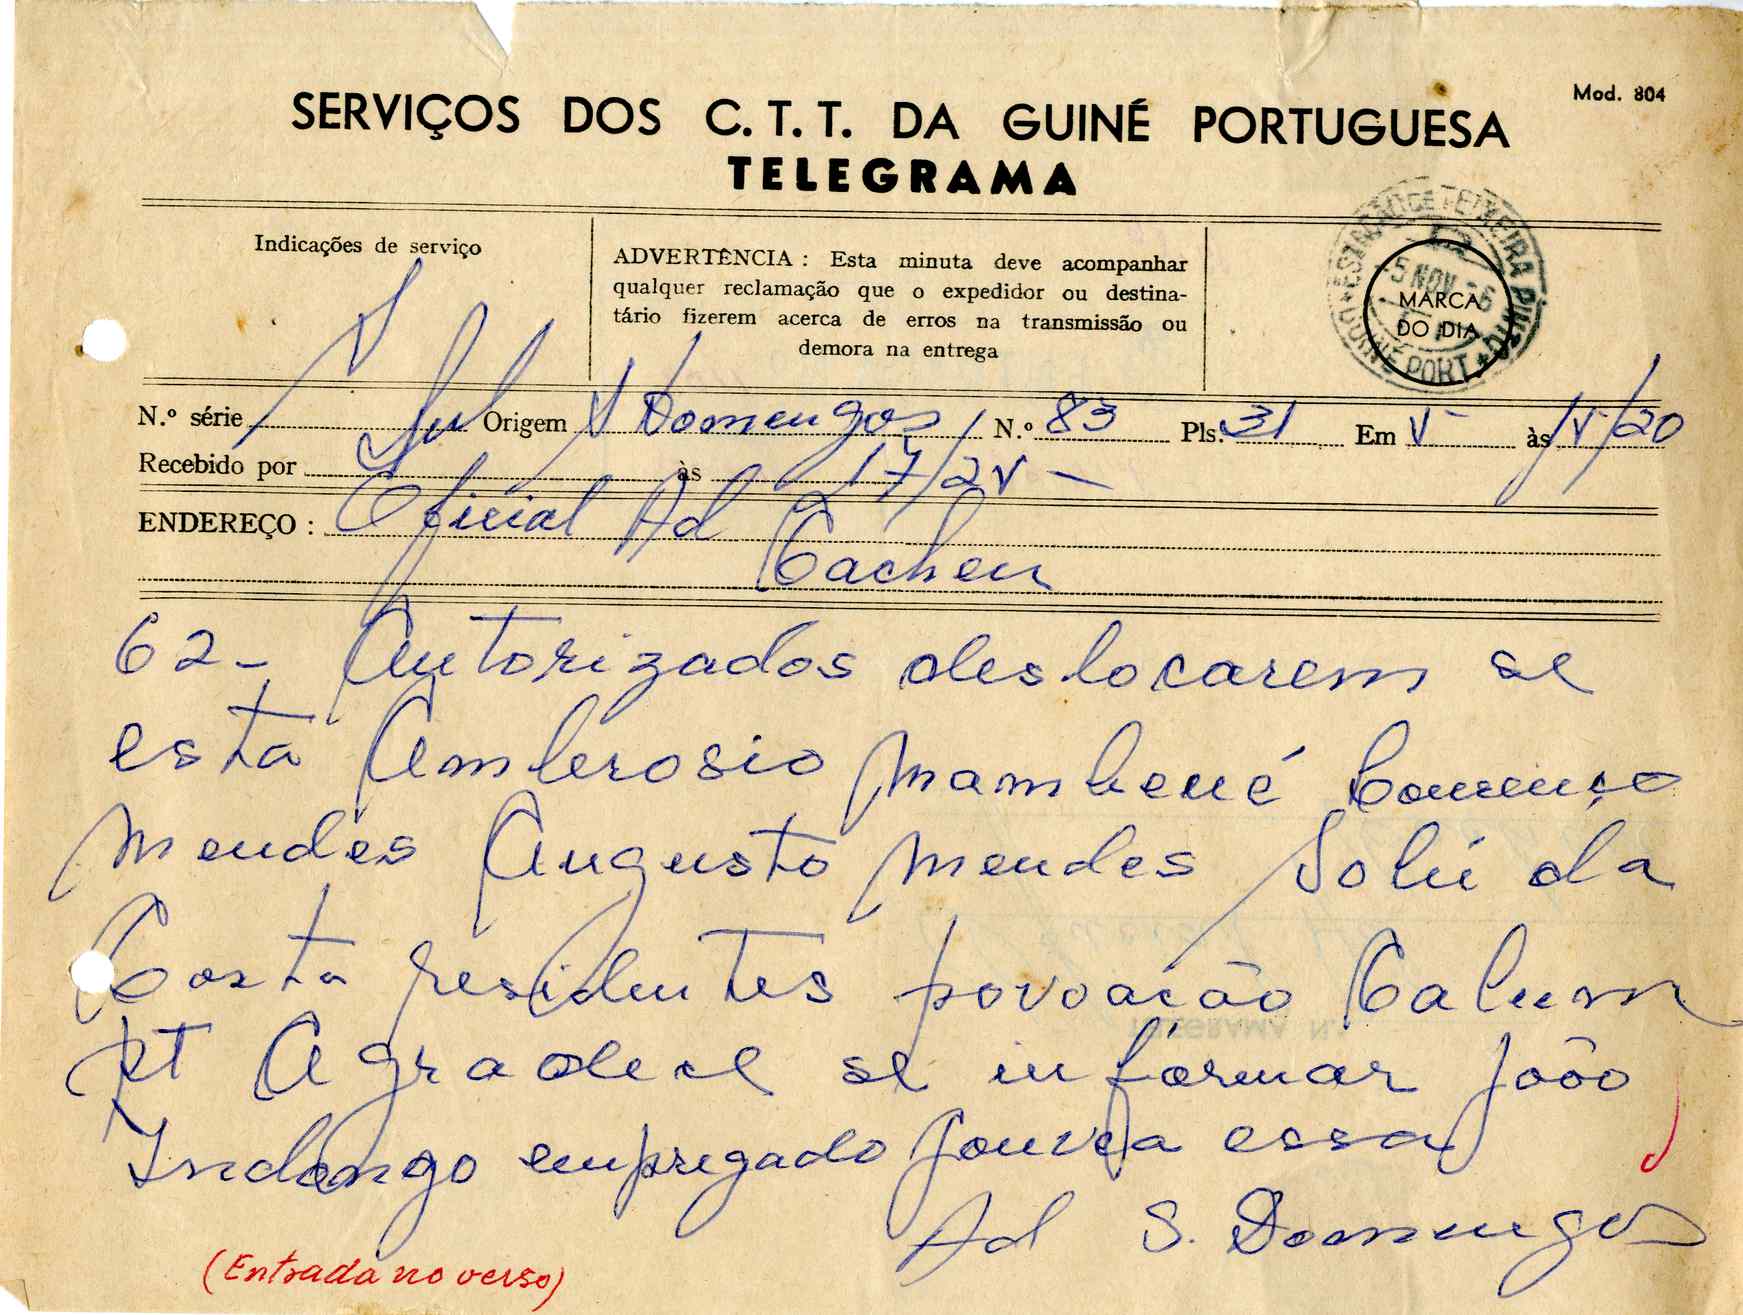 Mod. 804
SERVIÇOS DOS C. T. T. DA GUINÉ PORTUGUESA
TELEGRAMA
Indicações de serviço
S
ADVERTÊNCIA : Esta minuta deve acompanhar
qualquer reclamação que o expedidor ou destina-
tário fizerem acerca de erros na transmissão ou
demora na entrega
ESTAÇÃO DE TEIXEIRA PINTO
5 NOV
GUINÉ PORT.
MARCA
DO DIA
N.º série Origem S Domengos N.º 83 Pls. 31 Em V às 15/20
Recebido por às 17/25
ENDEREÇO : Oficial Ad
Cacheu
62 - Autorizados deslocarem se
esta Ambrosio Mambené Lourenço
Mendes Augusto Mendes da
Costa residentes povoacão
pt Agradece se informar João
Indongo empregado essa
Ad S. Domengos
(Entrada no verso)
TELEGRAMA N.